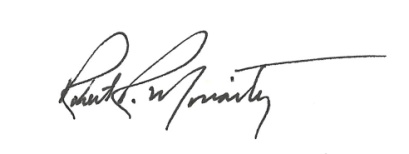 Robert R. Moriarty